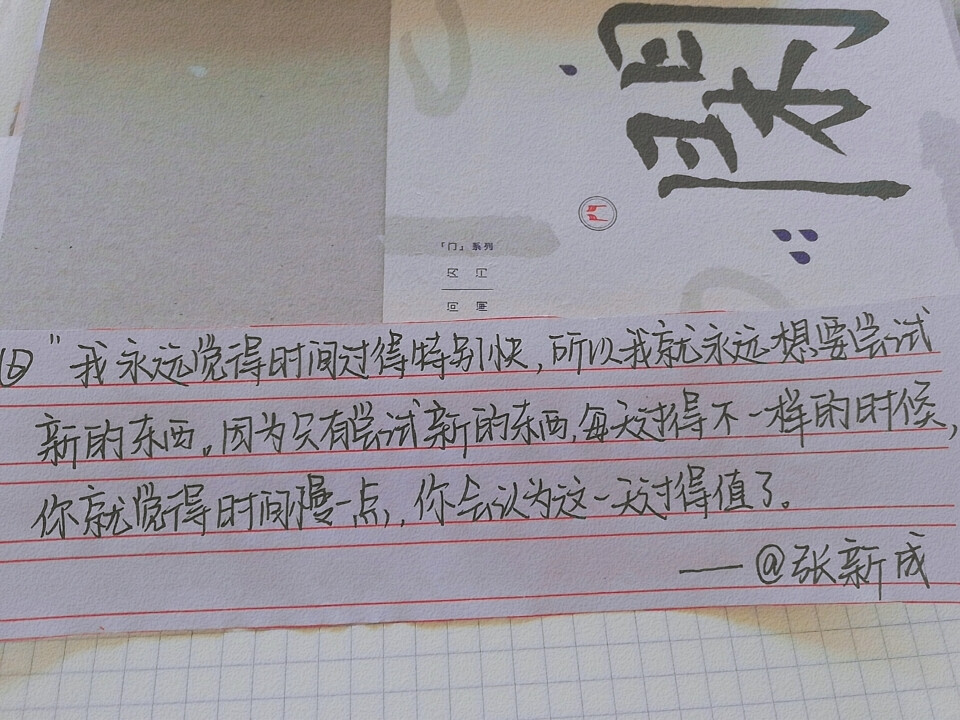 「门」系列
⑥"我永远觉得时间过得特别快,所以我就永远想要尝试
新的东西。因为只有尝试新的东西,每天过得不一样的时候,
你就觉得时间慢一点,你会认为这一天过得值了。
——@张新成